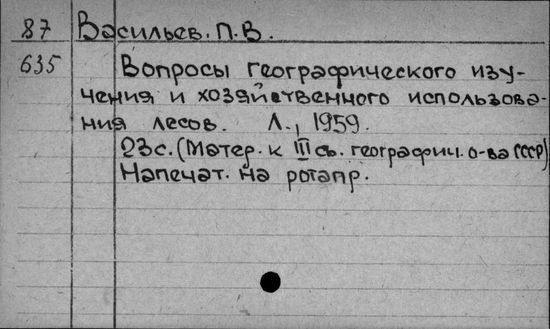 87 Васильев. П. В.
635 Вопросы географического изу-
чения и хозяйственного использова-
ния лесов. Л., 1959.
23с. (Матер. к III съ. географич. о-ва СССР)
Напечат. на ротапр.